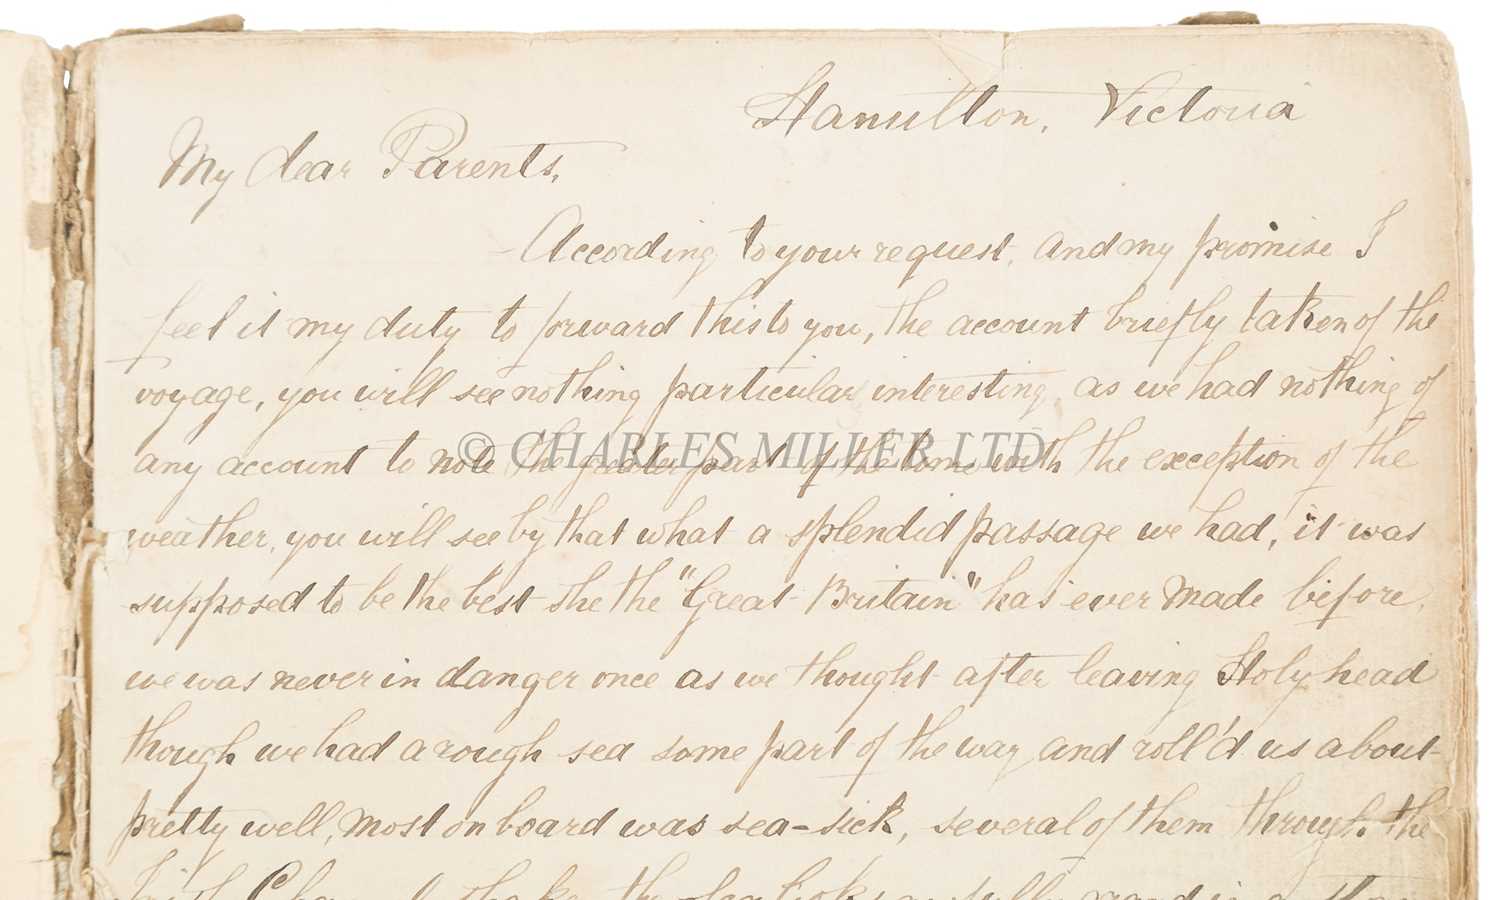 Hamilton, Victoria
My dear Parents,
According to your request, and my promise I
feel it my duty to forward this to you, the account briefly taken of the
voyage, you will see nothing particular interesting, as we had nothing of
any account to note the greater part of the time with the exception of the
© CHARLES MILLER LTD
weather, you will see by that what a splendid passage we had, it was
supposed to be the best she the "Great Britain" has ever made before,
we was never in danger once as we thought after leaving Holy head
though we had a rough sea some part of the way and roll'd us about
pretty well, most on board was sea-sick, several of them through the
Irish Channel, the sea looks awfully grand in a storm